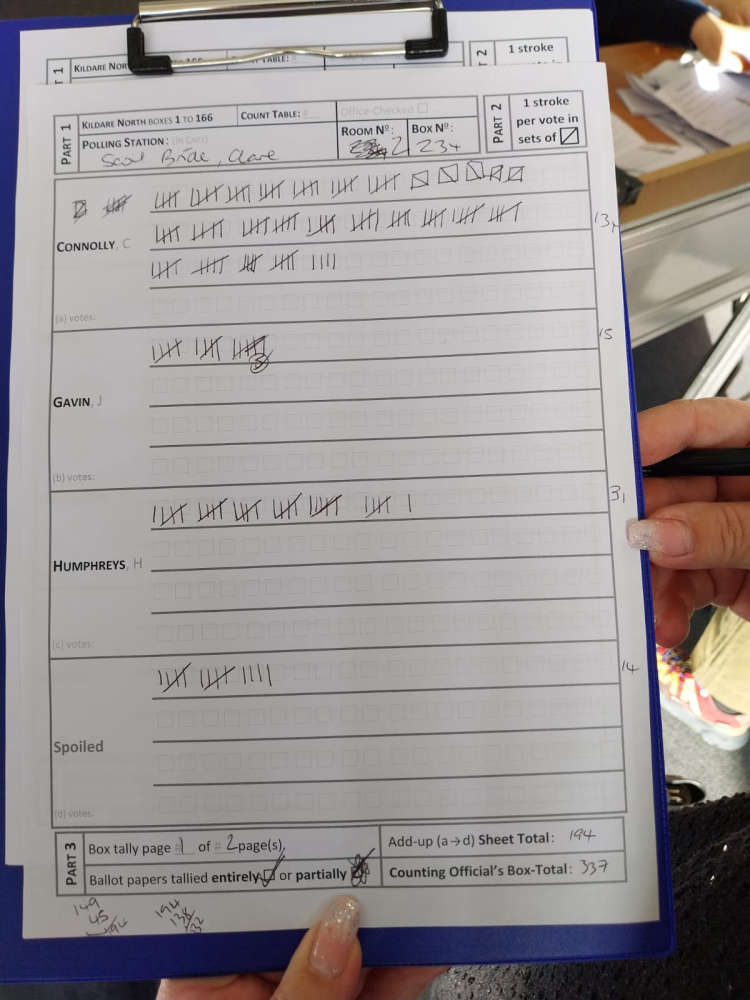 PART 1
KILDARE NORTH BOXES 1 TO 166
COUNT TABLE:
PART 2
1 stroke
PART 1
KILDARE NORTH BOXES 1 TO 166
COUNT TABLE:
Office-Checked
PART 2
1 stroke
per vote in
sets of
POLLING STATION:
Scoil Bride, Clane
ROOM Nº: 2
BOX Nº: 234
CONNOLLY, C
(a) votes:
GAVIN, J
15
(b) votes:
HUMPHREYS, H
31
(c) votes:
Spoiled
14
(d) votes:
PART 3
Box tally page # 1 of # 2 page(s),
Add-up (a→d) Sheet Total: 194
Ballot papers tallied entirely or partially
Counting Official's Box-Total: 337
149
45
194
194
138
332